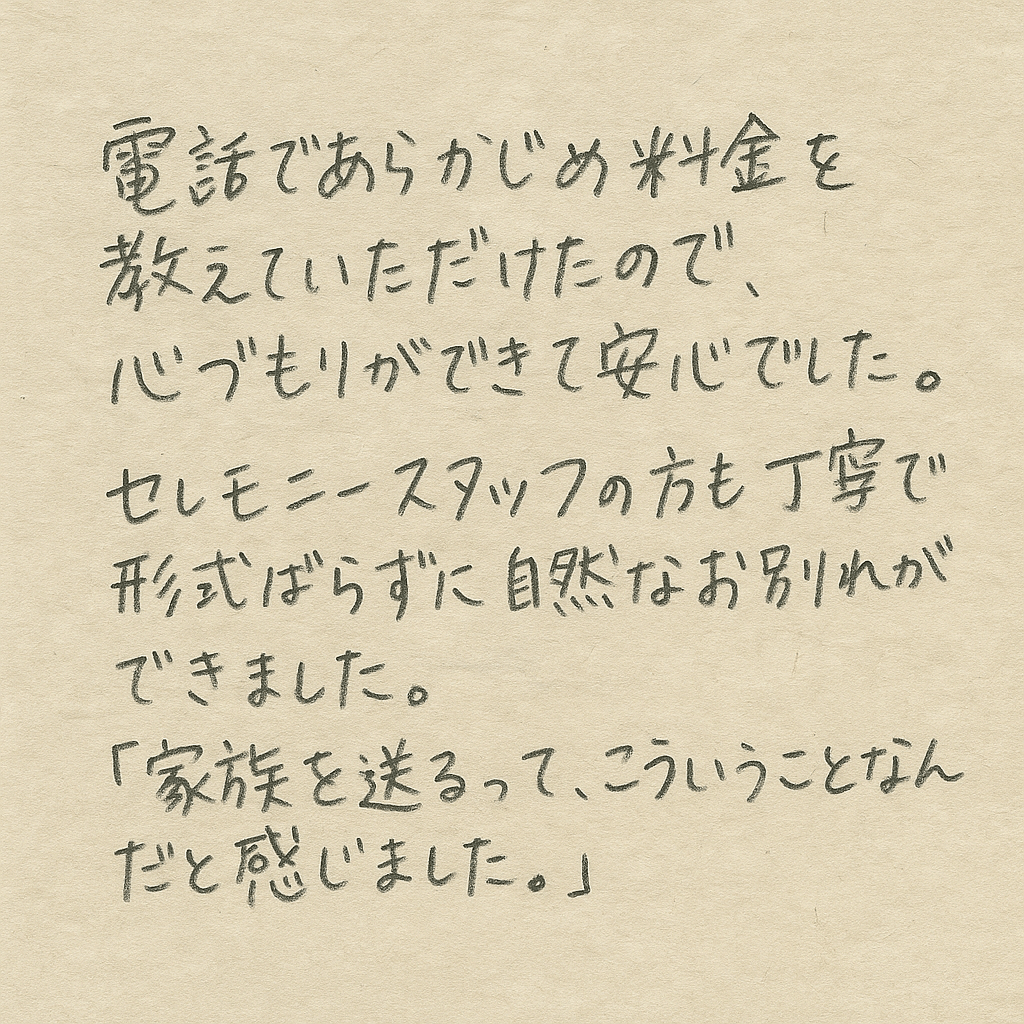 電話であらかじめ料金を
教えていただけたので、
心づもりができて安心でした。
セレモニースタッフの方も丁寧で
形式ばらずに自然なお別れが
できました。
「家族を送るって、こういうことなん
だと感じました。」